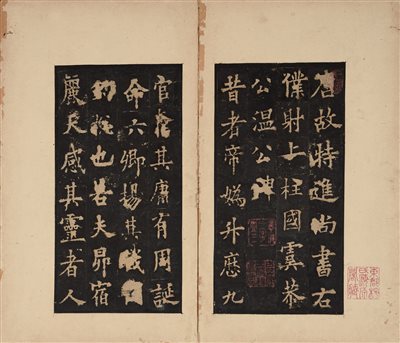 唐故特進尚書右
僕射上柱國虞恭
公温公碑
昔者帝媯升歷九
官在其庸有周誕
命六卿揚其職
也若夫昴宿
麗天感其靈者人